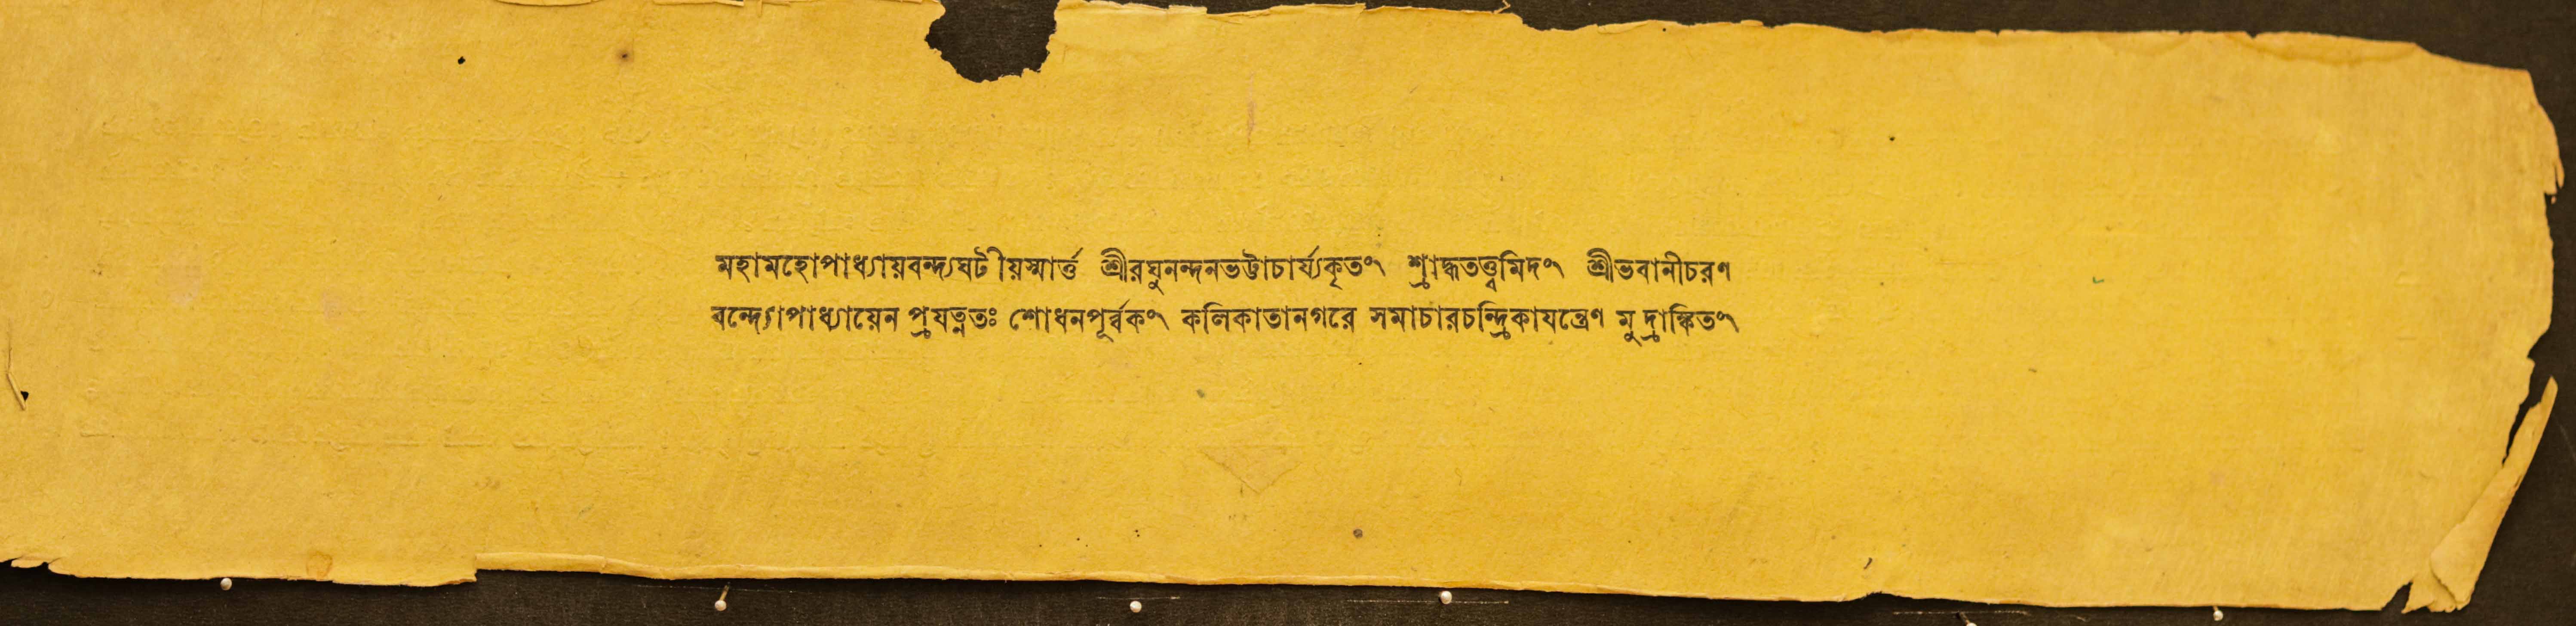 মহামহোপাধ্যায়বন্দ্যঘটীয়স্মার্ত্ত শ্রীরঘুনন্দনভট্টাচার্য্যকৃতং শ্রাদ্ধতত্ত্বমিদং শ্রীভবানীচরণ
বন্দ্যোপাধ্যায়েন প্রযত্নতঃ শোধনপূর্ব্বকং কলিকাতানগরে সমাচারচন্দ্রিকাযন্ত্রেণ মুদ্রাঙ্কিতং